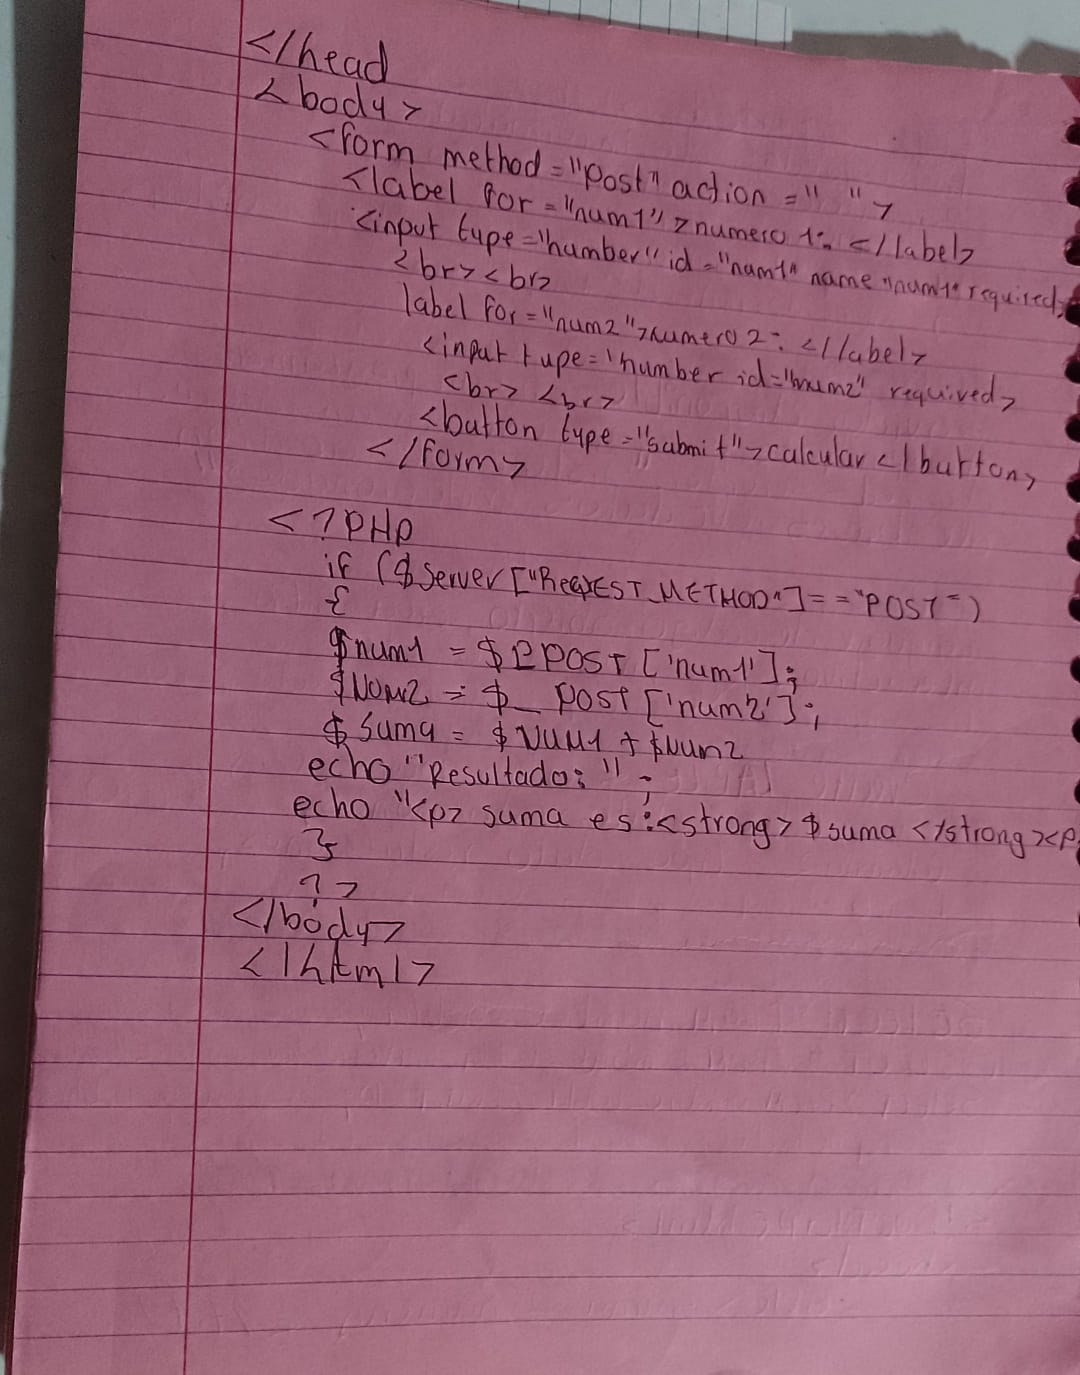 </head
<body>
<form method="Post" action=" ">
<label for="num1">numero 1: </label>
<input type="number" id="num1" name "num1" required>
<br><br>
label for="num2">numero 2: </label>
<input type='number id="num2" required>
<br> <br>
<button type="submit">calcular </button>
</form>
<?PHP
if ($Server["REQUEST_METHOD"]=="POST")
{
$num1 = $ POST ['num1'];
$Num2 = $_ POST ['num2'];
$ suma = $NUM1 + $Num2
echo "Resultado: ";
echo "<p> suma es:<strong>$suma </strong><P
}
?>
</body>
</html>